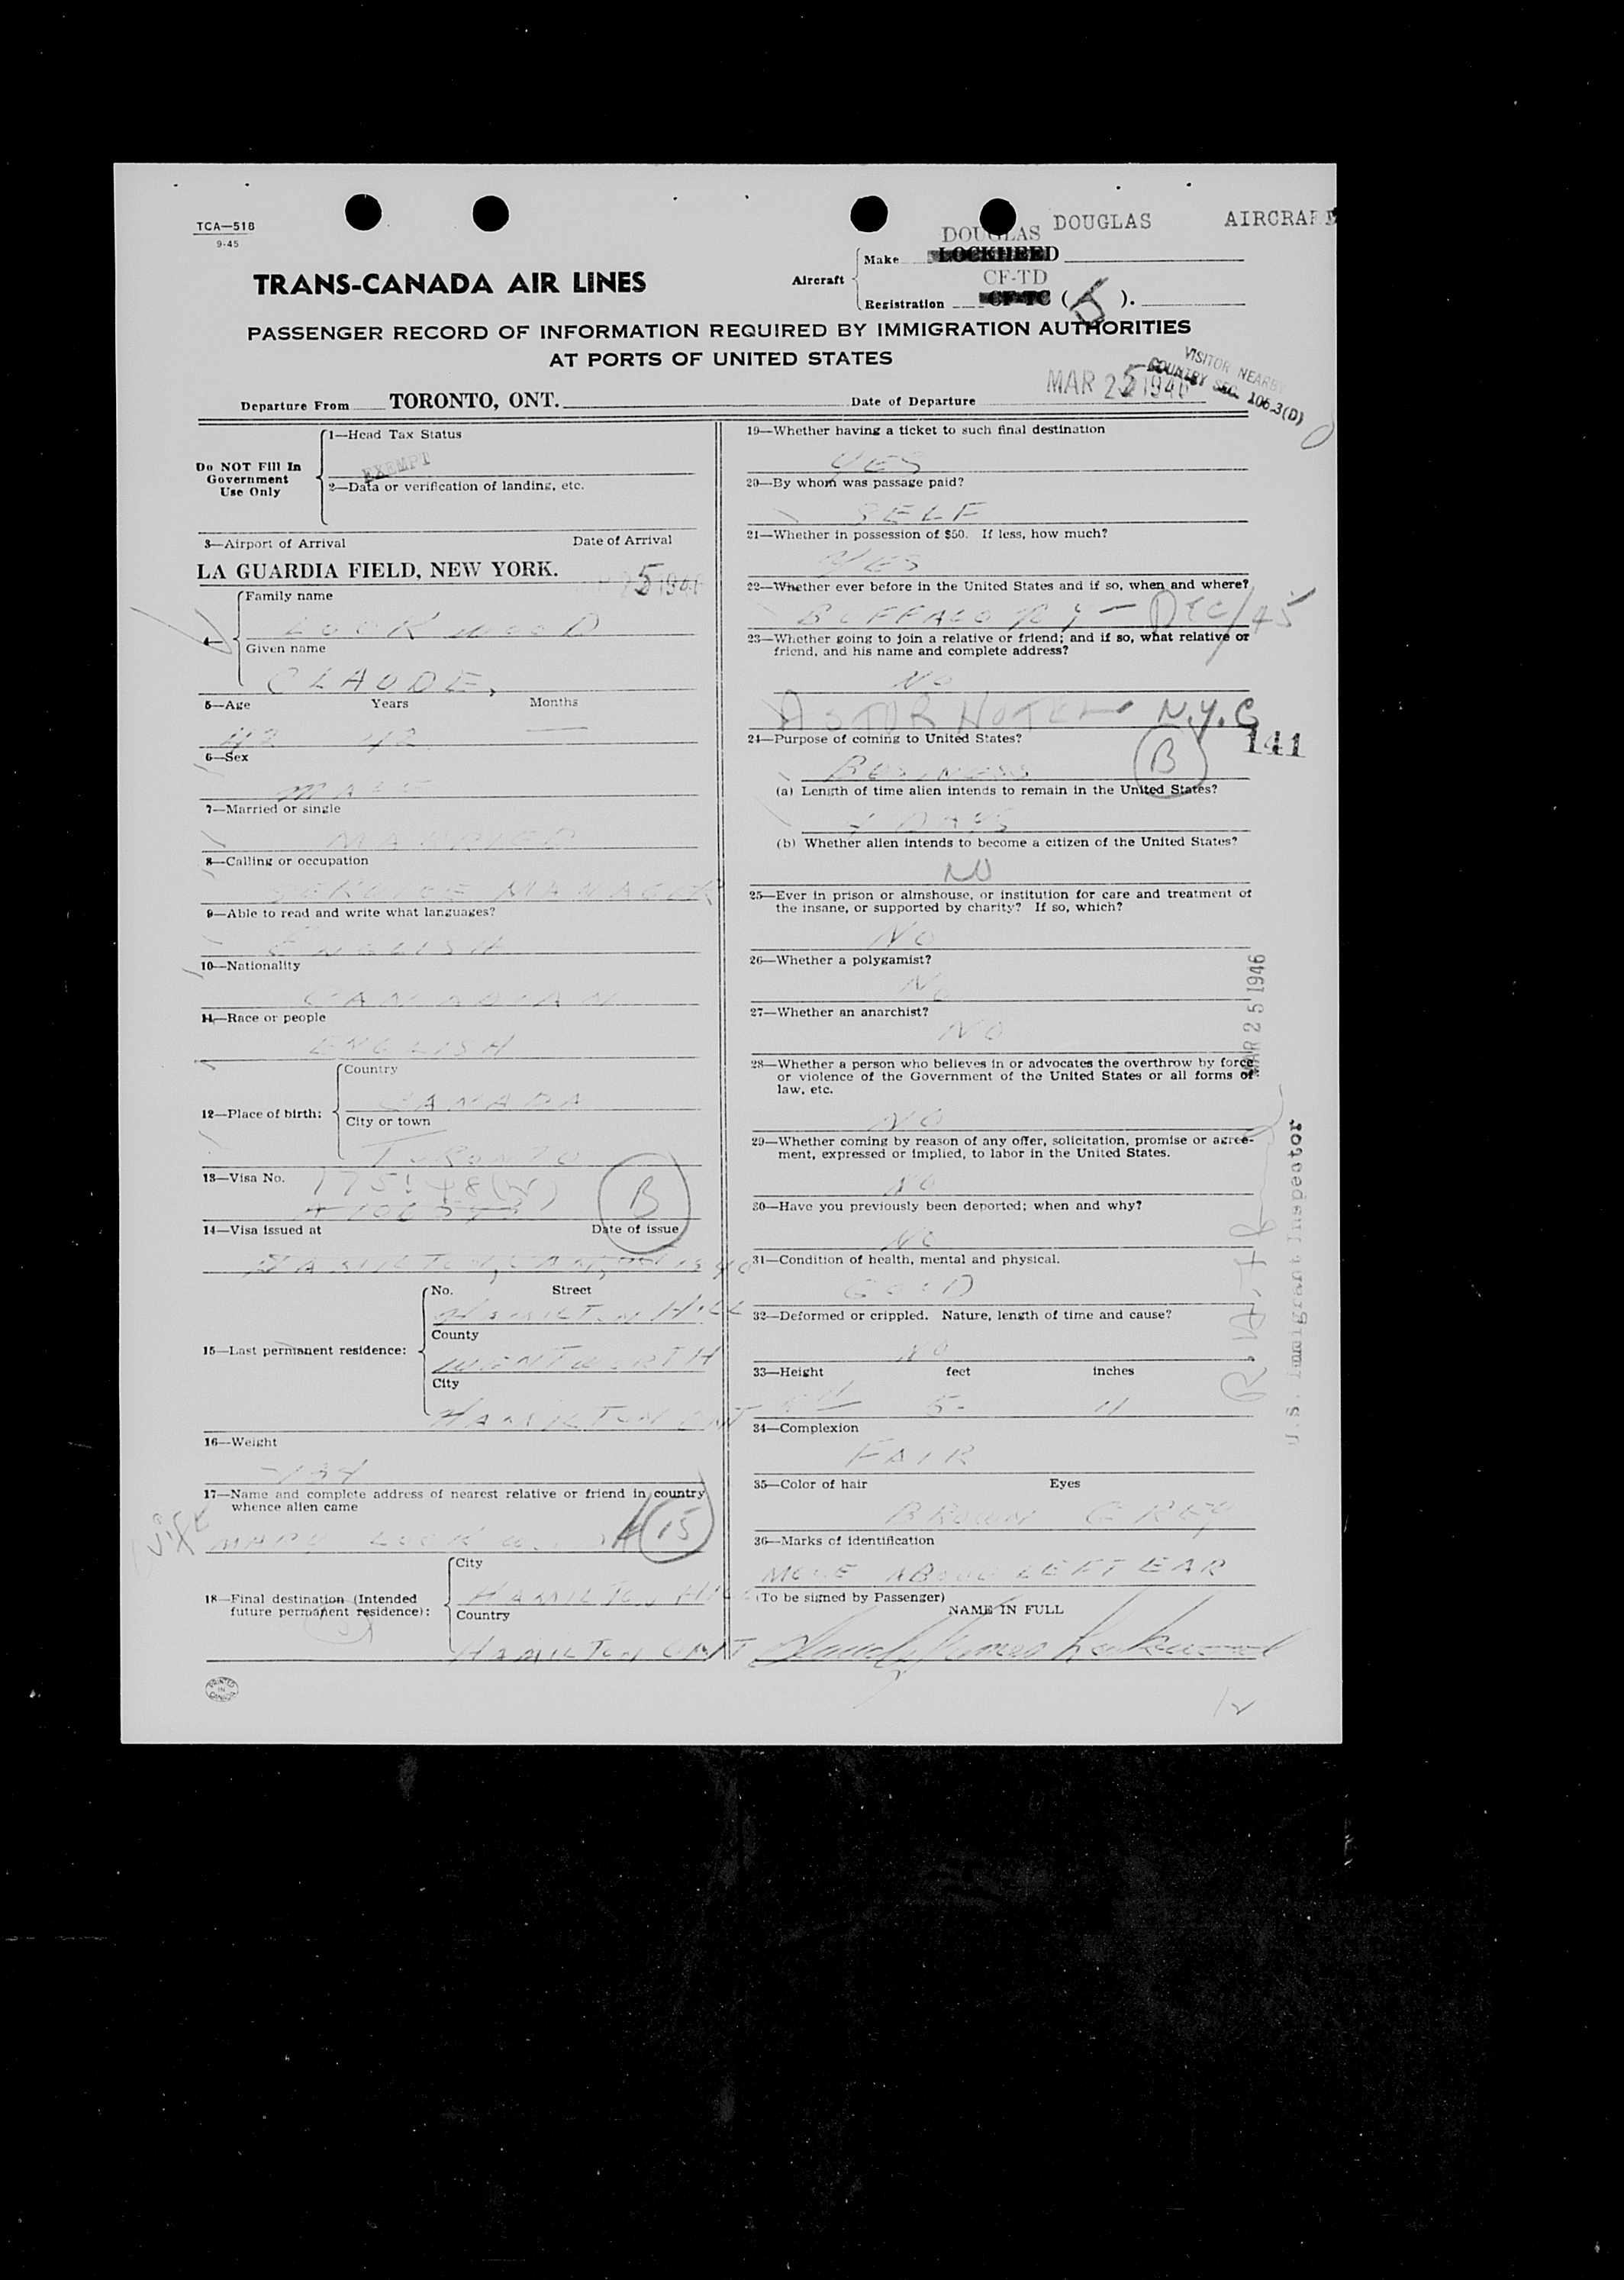 TCA—518
9-45
DOUGLAS AIRCRAFT
DOUGLAS
Aircraft
Make LOCKHEED
CF-TD
Registration CF-TC ( ).
TRANS-CANADA AIR LINES
PASSENGER RECORD OF INFORMATION REQUIRED BY IMMIGRATION AUTHORITIES
AT PORTS OF UNITED STATES
VISITOR NEARBY
COUNTRY SEC. 106.3(D)
MAR 25 1946
Departure From TORONTO, ONT. Date of Departure
Do NOT Fill In
Government
Use Only
1—Head Tax Status
EXEMPT
2—Data or verification of landing, etc.
3—Airport of Arrival Date of Arrival
LA GUARDIA FIELD, NEW YORK. 25 1946
4—
Family name
LOCKWOOD
Given name
CLAUDE,
5—Age Years Months
42 42 —
6—Sex
MALE
7—Married or single
MARRIED
8—Calling or occupation
SERVICE MANAGER
9—Able to read and write what languages?
ENGLISH
10—Nationality
CANADIAN
11—Race or people
ENGLISH
12—Place of birth:
Country
CANADA
City or town
TORONTO
13—Visa No.
B
14—Visa issued at Date of issue
HAMILTON,
15—Last permanent residence:
No. Street
HAMILTON HILL
County
WENTWORTH
City
HAMILTON ONT
16—Weight
17—Name and complete address of nearest relative or friend in country
whence alien came
wife MARY LOCKWOOD 15
18—Final destination (Intended
future permanent residence):
City
HAMILTON
Country
HAMILTON ONT
PRINTED IN CANADA
19—Whether having a ticket to such final destination
YES
20—By whom was passage paid?
SELF
21—Whether in possession of $50. If less, how much?
YES
22—Whether ever before in the United States and if so, when and where?
BUFFALO NY — DEC/45
23—Whether going to join a relative or friend; and if so, what relative or
friend, and his name and complete address?
NO
ASTOR HOTEL — N.Y.C
141
24—Purpose of coming to United States?
BUSINESS B
(a) Length of time alien intends to remain in the United States?
DAYS
(b) Whether alien intends to become a citizen of the United States?
NO
25—Ever in prison or almshouse, or institution for care and treatment of
the insane, or supported by charity? If so, which?
NO
26—Whether a polygamist?
NO
27—Whether an anarchist?
NO
28—Whether a person who believes in or advocates the overthrow by force
or violence of the Government of the United States or all forms of
law, etc.
NO
29—Whether coming by reason of any offer, solicitation, promise or agree-
ment, expressed or implied, to labor in the United States.
NO
30—Have you previously been deported; when and why?
NO
31—Condition of health, mental and physical.
GOOD
32—Deformed or crippled. Nature, length of time and cause?
NO
33—Height feet inches
5- 11
34—Complexion
FAIR
35—Color of hair Eyes
BROWN GREY
36—Marks of identification
MOLE ABOVE LEFT EAR
(To be signed by Passenger)
NAME IN FULL
Claude James Lockwood
MAR 25 1946
U.S. Immigrant Inspector